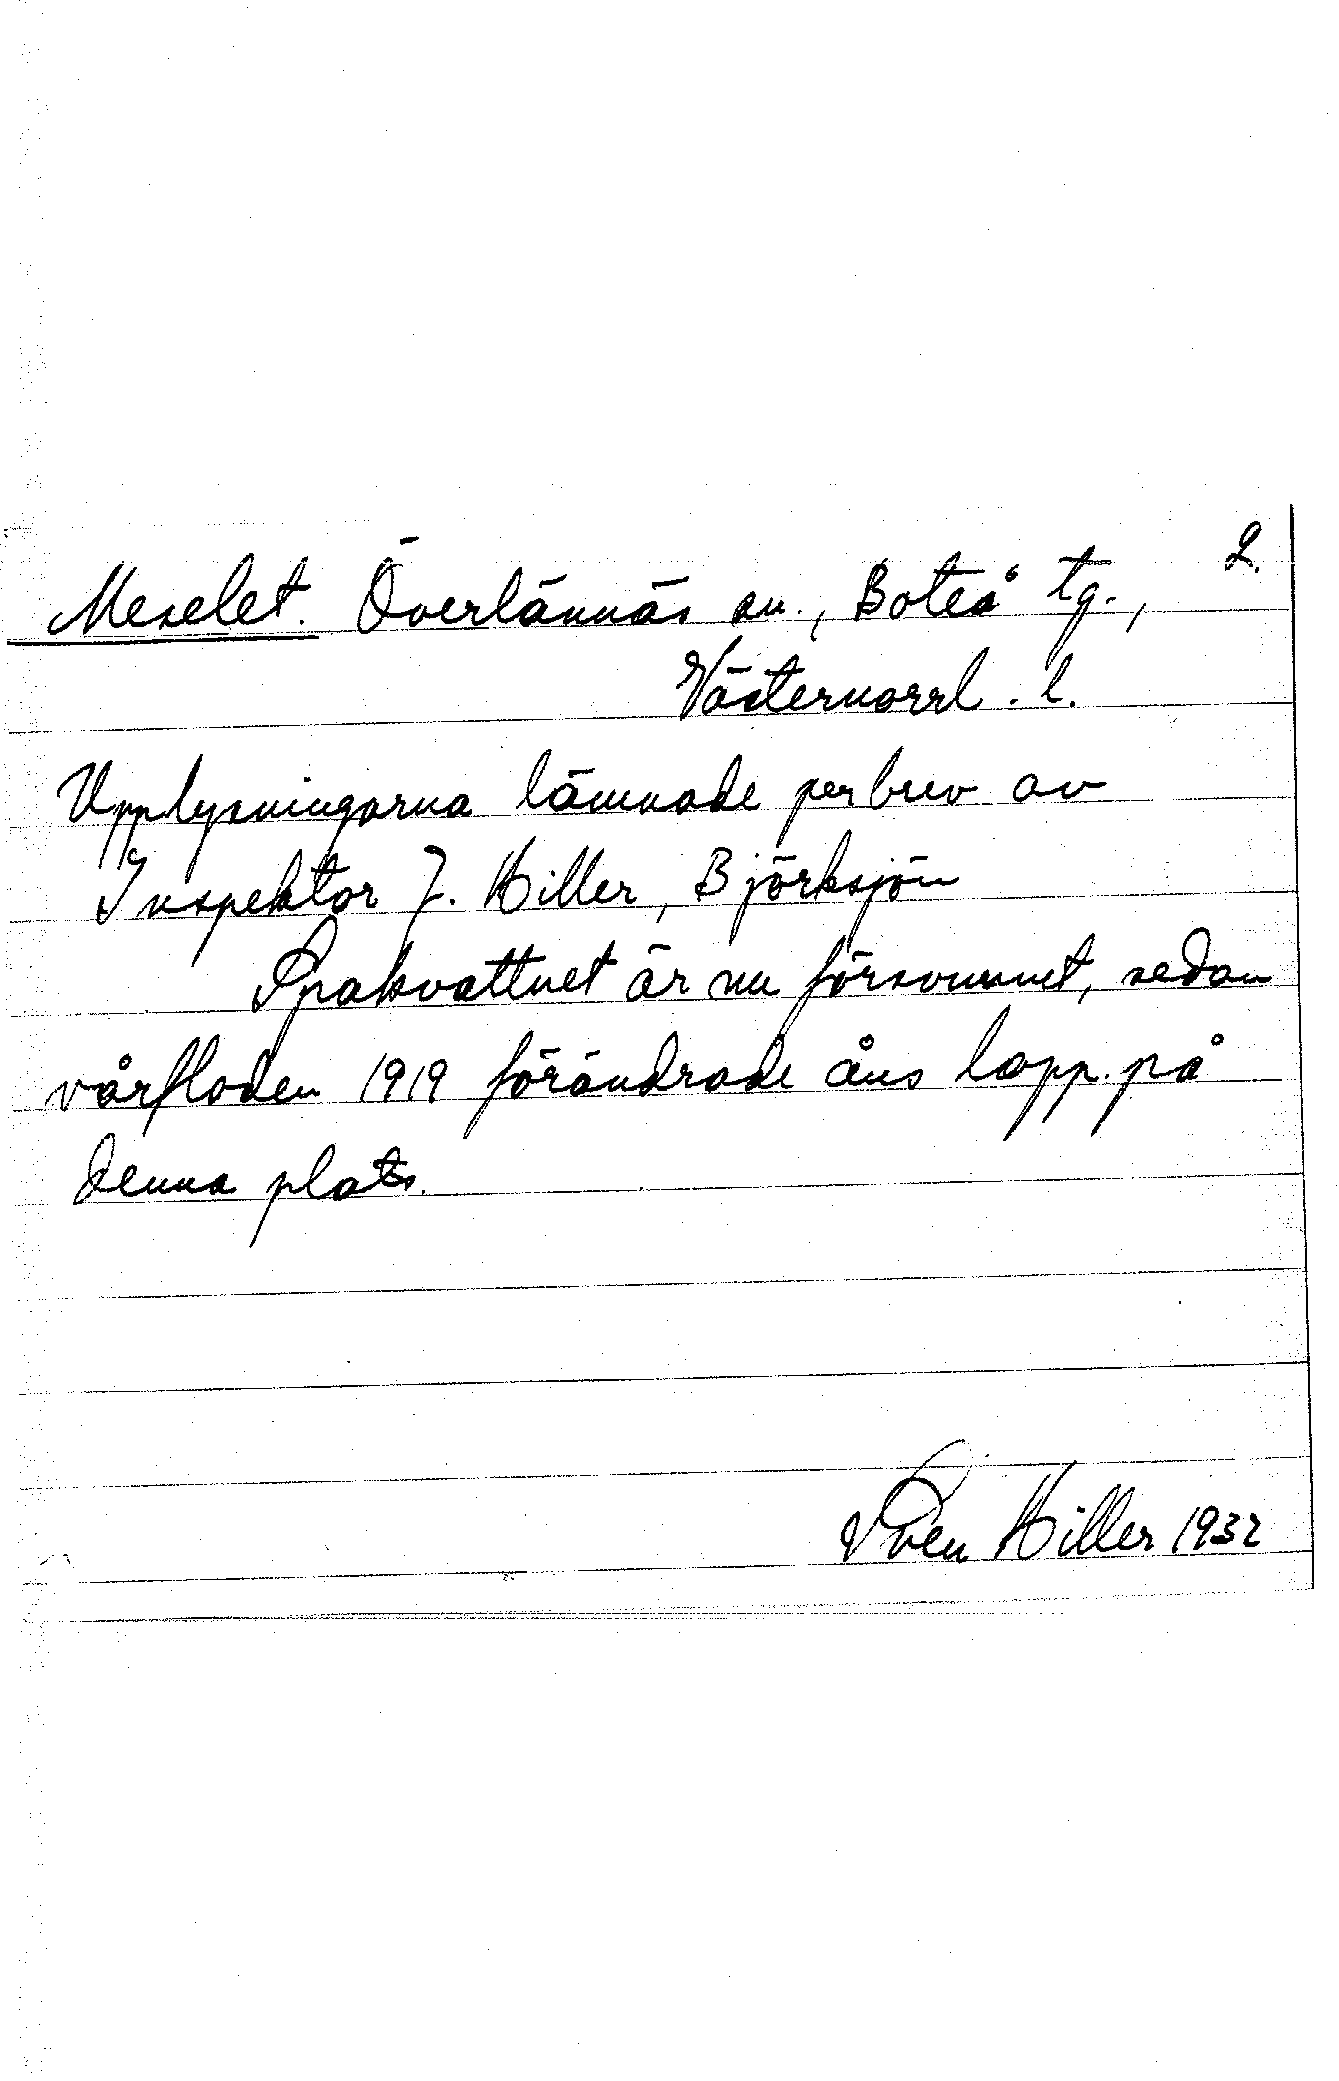 Meselet. Överlännäs sn., Boteå tg., 2.
Västernorrl. l.
Upplysningarna lämnade per brev av
Inspektor J. Hiller, Björksjön
Spakvattnet är nu försvunnet, sedan
vårfloden 1919 förändrade åns lopp på
denna plats.
Sven Hiller 1932